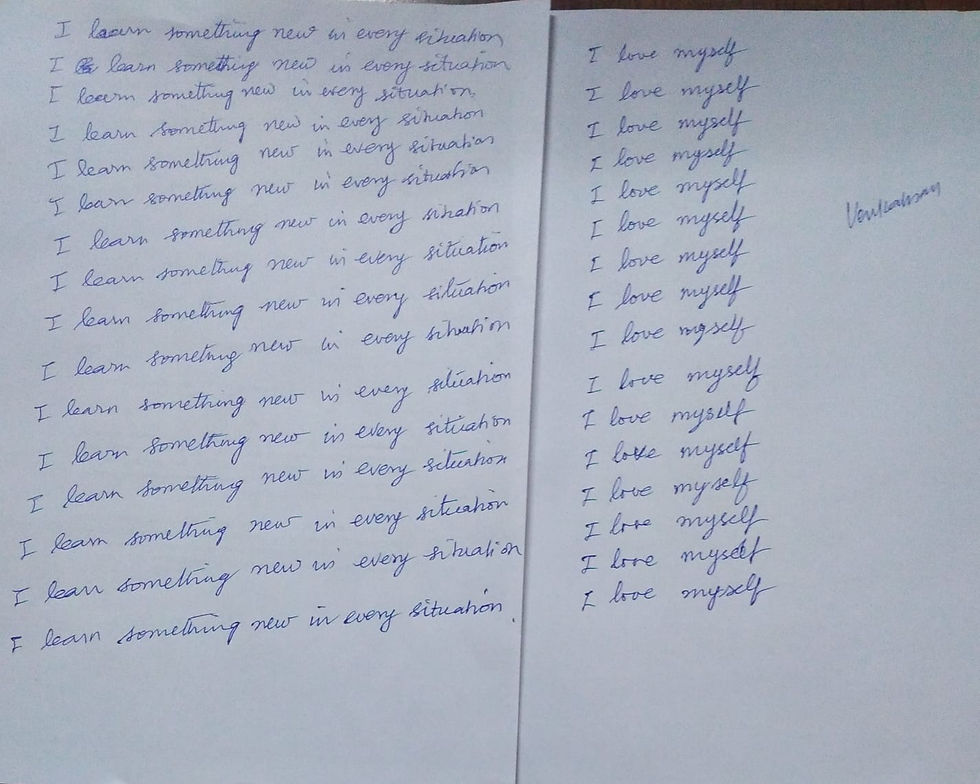 I learn something new in every situation
I learn something new in every situation
I learn something new in every situation.
I learn something new in every situation
I learn something new in every situation
I learn something new in every situation
I learn something new in every situation
I learn something new in every situation
I learn something new in every situation
I learn something new in every situation
I learn something new in every situation
I learn something new in every situation
I learn something new in every situation
I learn something new in every situation
I learn something new in every situation
I learn something new in every situation.
I love myself
I love myself
I love myself
I love myself
I love myself
I love myself
I love myself
I love myself
I love myself
I love myself
I love myself
I love myself
I love myself
I love myself
I love myself
I love myself